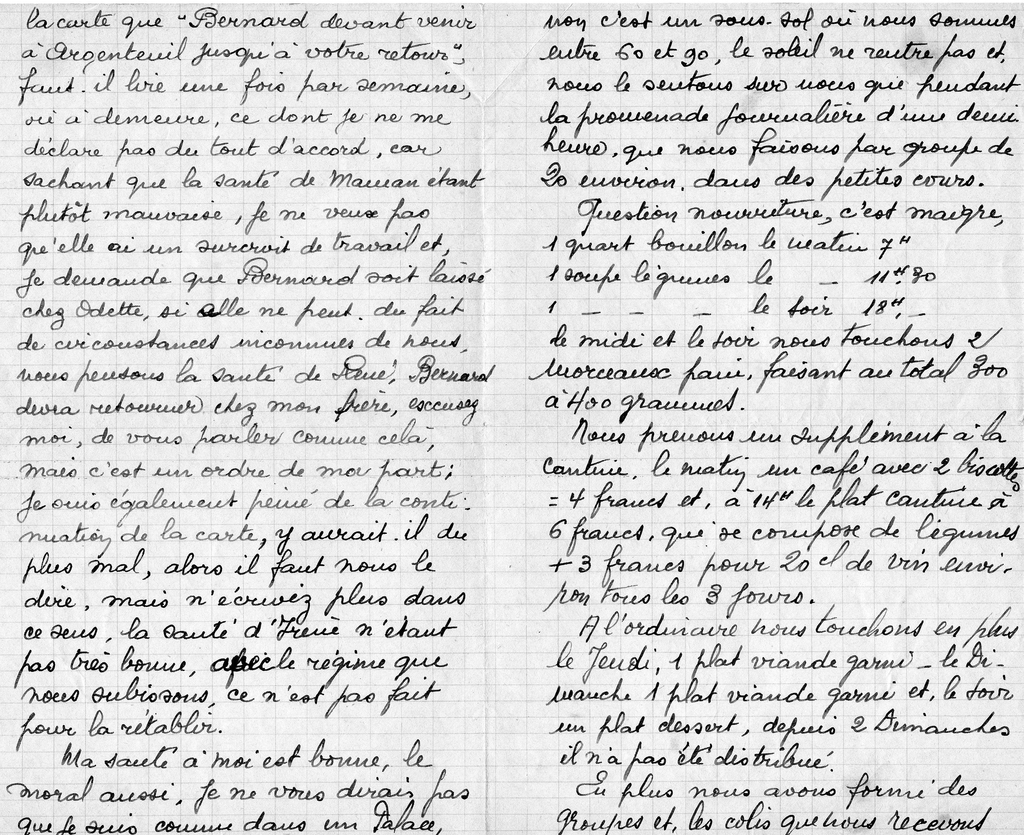 la carte que "Bernard devant venir
à Argenteuil jusqu'à votre retour",
faut-il lire une fois par semaine,
où à demeure, ce dont je ne me
déclare pas du tout d'accord, car
sachant que la santé de Maman étant
plutôt mauvaise, je ne veux pas
qu'elle ai un surcroit de travail et,
je demande que Bernard soit laissé
chez Odette, si elle ne peut, du fait
de circonstances inconnues de nous,
nous pensons la santé de René, Bernard
devra retourner chez mon frère, excusez
moi, de vous parler comme celà,
mais c'est un ordre de mon part;
Je suis également peiné de la conti-
nuation de la carte, y aurait-il du
plus mal, alors il faut nous le
dire, mais n'écrivez plus dans
ce sens, la santé d'Irène n'étant
pas très bonne, avec le régime que
nous subissons, ce n'est pas fait
pour la rétablir.
Ma santé à moi est bonne, le
moral aussi, je ne vous dirais pas
que je suis comme dans un Palace,
non c'est un sous-sol où nous sommes
entre 60 et 90, le soleil ne rentre pas et,
nous le sentons sur nous que pendant
la promenade journalière d'une demi
heure, que nous faisons par groupe de
20 environ, dans des petites cours.
Question nourriture, c'est maigre,
1 quart bouillon le matin 7H
1 soupe légumes le — 11H,30
1 — — — le soir 18H, —
le midi et le soir nous touchons 2
morceaux pain, faisant au total 300
à 400 grammes.
Nous prenons un supplément à la
cantine, le matin un café avec 2 biscottes
= 4 francs et, à 14H le plat cantine à
6 francs, qui se compose de légumes
+ 3 francs pour 20 cl de vin envi-
ron tous les 3 jours.
A l'ordinaire nous touchons en plus
le Jeudi, 1 plat viande garni — le Di-
manche 1 plat viande garni et, le soir
un plat dessert, depuis 2 Dimanches
il n'a pas été distribué.
En plus nous avons formé des
groupes et, les colis que nous recevons